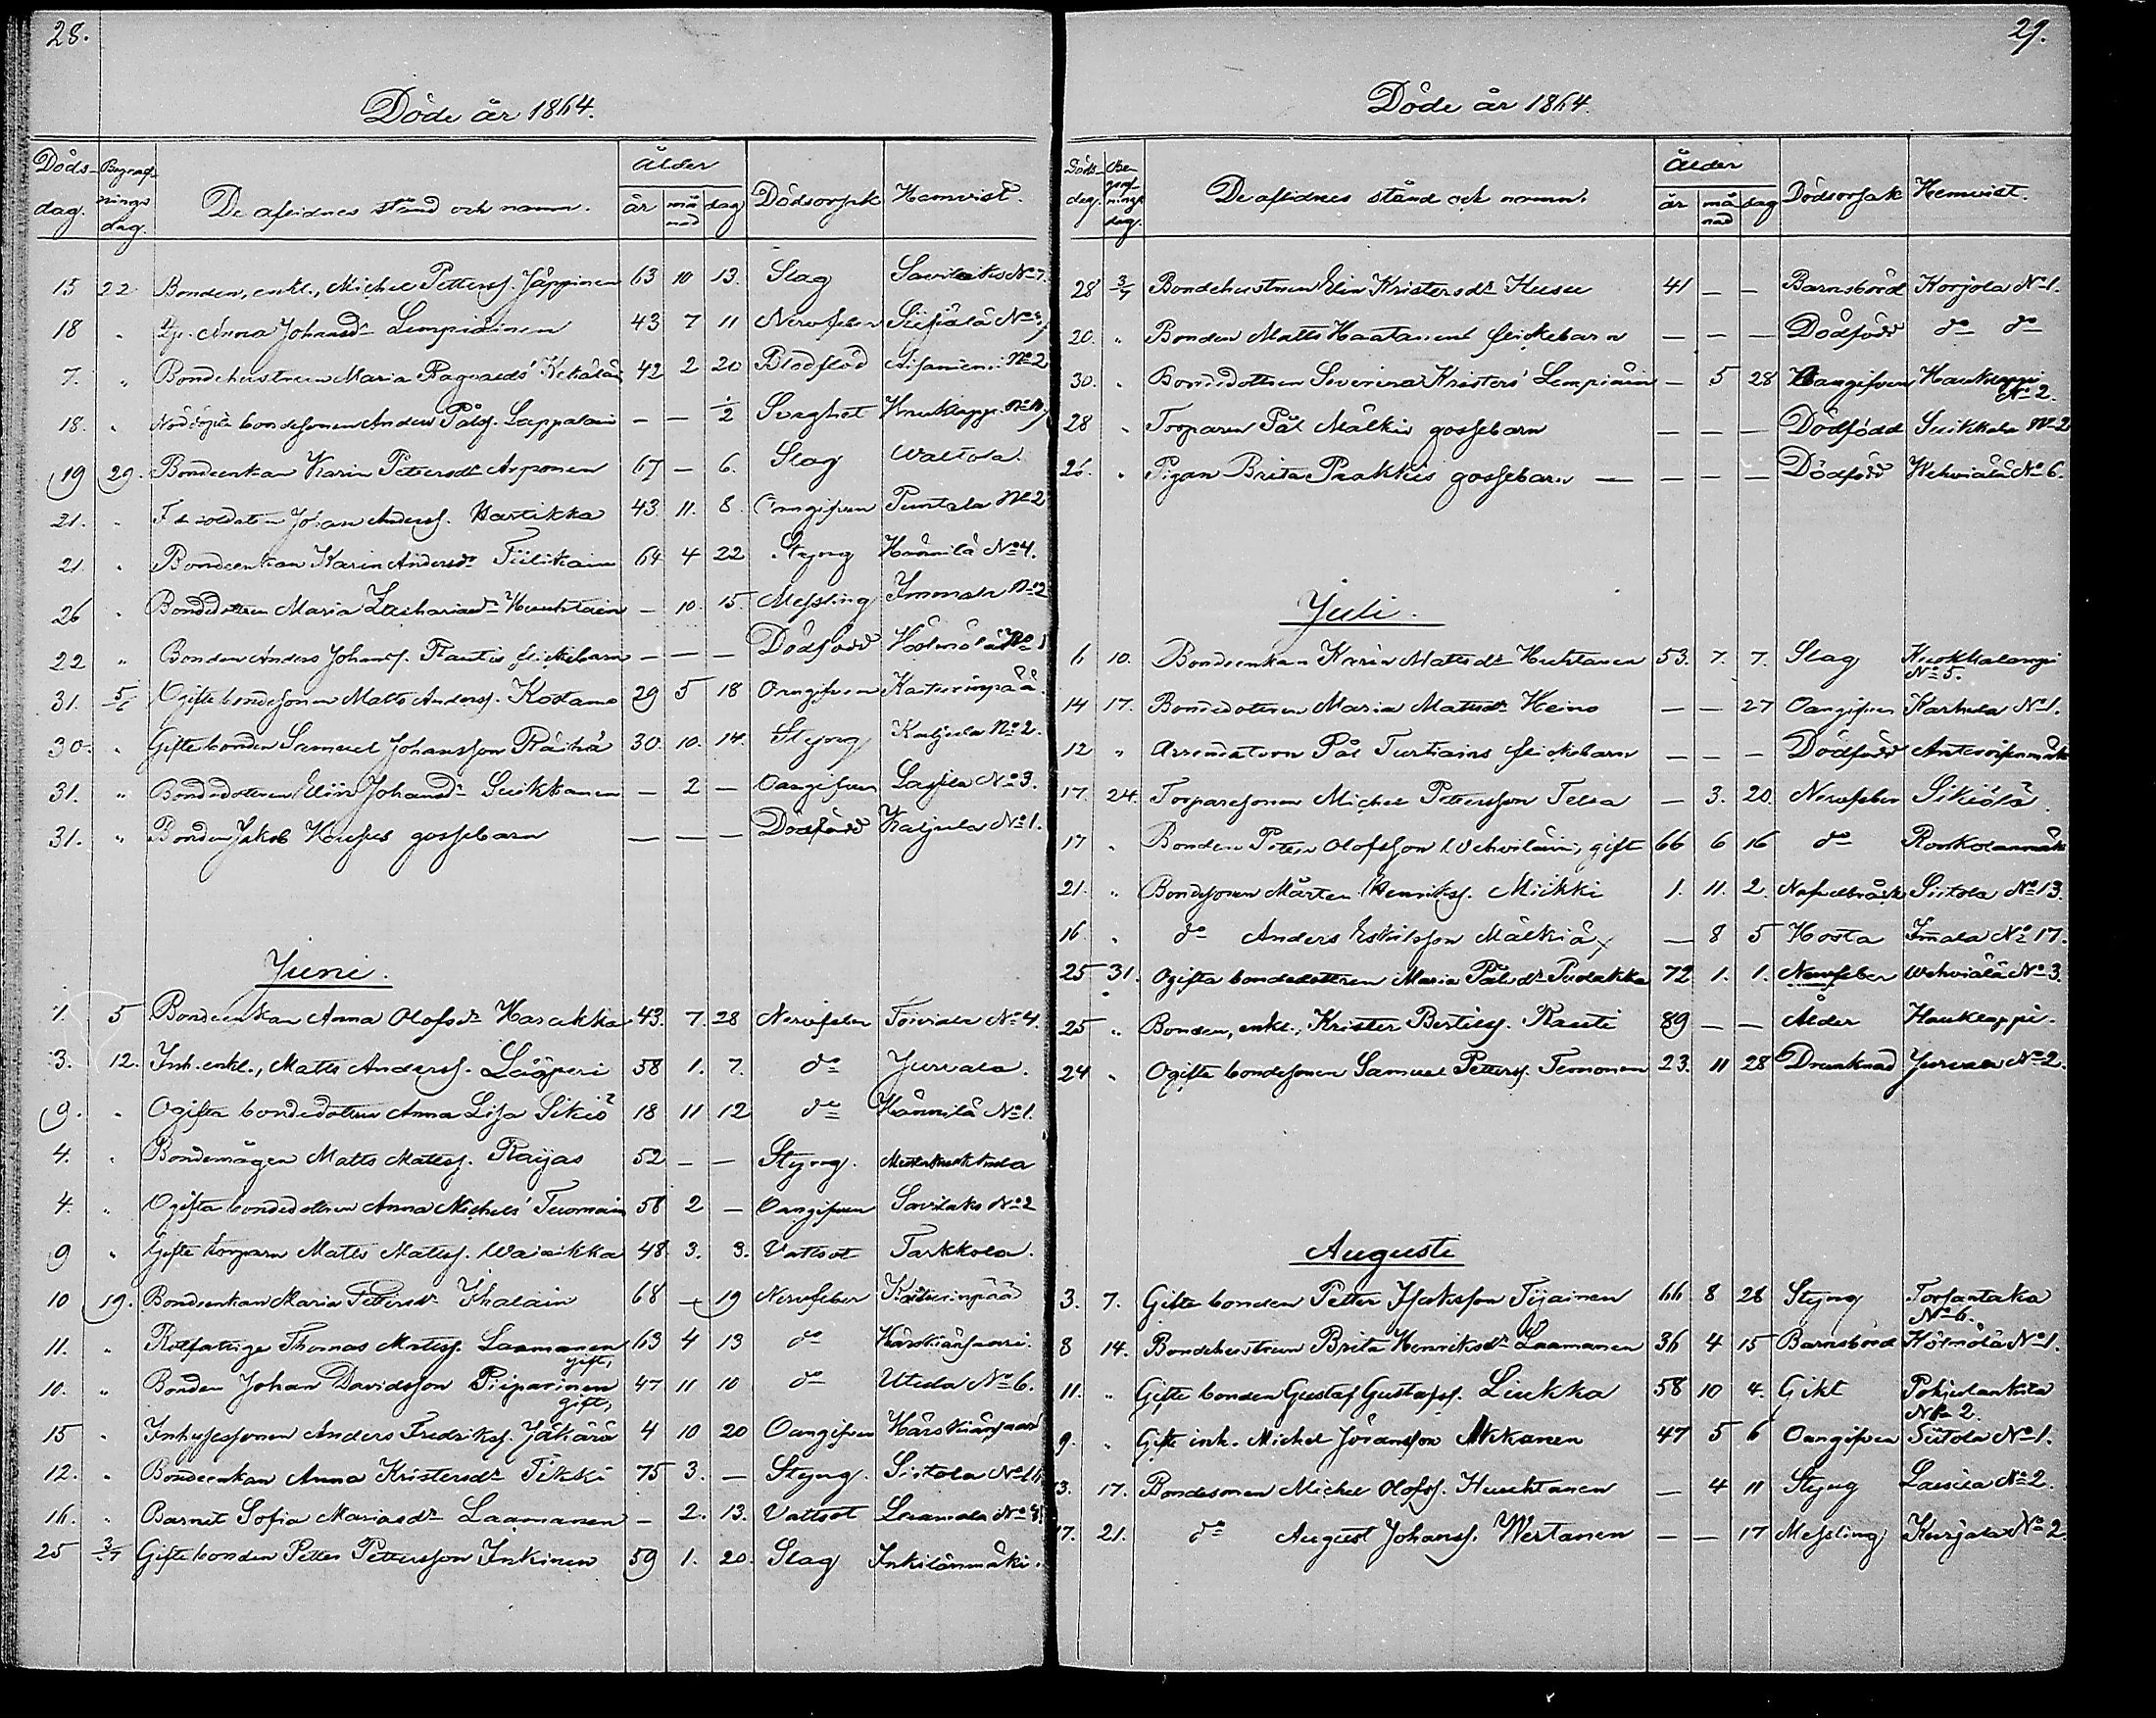 28.
Döde år 1864.
Döds-dag. Begrafningsdag. De aflidnes stånd och namn. ålder år månad dag Dödsorsak Hemvist.
15 22 Bonden, enkl., Michel Petterss. Jäppinen 63 10 13. Slag Savilaks No 7.
18 " Anna Johansdr Lempiäinen 43 7 11 Nervfeber
7. " Bondehustrun Maria Ragvalds' 42 2 20 Blodflöd No 2
18. " Nöddöpte bondesonen Anders Påls. Lappalain — — 1/2 Svaghet
19 29. Bondeenkan Karin Pettersdr Arponen 67 — 6. Slag Waltola
21. " F d soldaten Johan Anderss. Martikka 43. 11. 8. Oangifven Puntala No 2
21 " Bondeenkan Karin Andersdr Tiilikain 64 4 22 Styng Hännilä No 4.
26 " Bondedottren Maria Zachariasdr Huuhtain — 10. 15. Messling Immala No 2
22 " Bonden Anders Johanss. Rautis flickebarn — — — Dödfödd Kolmölä No 1
31. 5/6 Ogifte bondesonen Matts Anderss. Kostamo 29 5 18 Oangifven Katurinpää.
30. " Gifte bonden Samuel Johansson Räihä 30. 10. 14. Styng Kaljula No 2.
31. " Bondedottren Elin Johansdr Suikkanen — 2 — Oangifven Lassila No 3.
31. " Bonden Jakob Kousus gossebarn — — — Dödfödd Kaljula No 1.
Juni.
1. 5 Bondeenkan Anna Olofsdr Harakka 43. 7. 28 Nervfeber Toivola No 4.
3. 12. Inh. enkl., Matts Anderss. Lääperi 58 1. 7. do Jurvala.
9. " Ogifta bondedottren Anna Lisa Sikiö 18 11 12 do Hännilä No 1.
4. " Bondemågen Matts Matss. Raijas 52 — — Styng.
4. " Ogifta bondedottren Anna Michels' Tuomain 58 2 — Oangifven Savilaks No 2
9 " Gifte torparn Matts Matss. Wainikka 48. 3. 3. Vattsot Tarkkola.
10 19. Bondeenkan Maria Pettersdr Ihalain 68 — 19 Nervfeber Katurinpää
11. " Rotfattige Thomas Matss. Laamanen gift, 63 4 13 do Kärskiänsaari.
10. " Bonden Johan Davidsson Piiparinen gift, 47 11 10 do Utula No 6.
15 " Inhysessonen Anders Fredrikss. Jäkärä 4 10 20 Oangifven Härskiänsaari
12. " Bondeenkan Anna Kristersdr Tikki 75 3. — Styng. Siitola No 11.
16. " Barnet Sofia Mariasdr Laamanen — 2. 13. Vattsot Laamala
25 3/7 Gifte bonden Petter Pettersson Inkinen 59 1. 20. Slag Inkilänmäki.
29.
Döde år 1864.
Döds-dag. Begrafningsdag. De aflidnes stånd och namn. Ålder år månad dag Dödsorsak Hemvist.
28 3/7 Bondehustrun Elin Kristersdr Husu 41 — — Barnsbörd Korjola No 1.
20. " Bonden Matts Haatanens flickebarn — — — Dödfödd do do
30. " Bondedottren Severina Kristers' Lempiäin — 5 28 Oangifven Haukkappi No 2.
28 " Torparen Pål Mälkis gossebarn — — — Dödfödd Suikkala No 2
26. " Pigan Brita Prakkis gossebarn — — — — Dödfödd Wehviälä No 6.
Juli.
6 10. Bondeenkan Karin Mattsdr Huhtanen 53. 7. 7. Slag Kuokkalampi No 5.
14 17. Bondedottren Maria Mattsdr Heino — — 27 Oangifven Karhula No 1.
12 " Arrendatorn Pål Turtiains flickebarn — — — Dödfödd
17. 24. Torparesonen Michel Pettersson Telsa — 3. 20 Nervfeber Sikiölä
17 " Bonden Petter Olofsson Wehviläin, gift 66 6 16 do
21. " Bondesonen Mårten Henrikss. Miikki 1. 11. 2. Nafvelbråck Siitola No 13.
16 " do Anders Eskilsson Mälkiä — 8 5 Hosta Imala No 17.
25 31. Ogifta bondedottren Maria Pålsdr Pudakka 72 1. 1. Nervfeber Wehviälä No 3.
25 " Bonden, enkl., Krister Bertilss. Rauti 89 — — Ålder Haukkappi.
24 " Ogifte bondesonen Samuel Petterss. Temonen 23. 11 28 Drunknad Jurvala No 2.
Augusti
3. 7. Gifte bonden Petter Isaksson Tijainen 66 8 28 Styng Torsantaka No 6.
8 14. Bondehustrun Brita Henriksdr Laamanen 36 4 15 Barnsbörd Kolmölä No 1.
11. " Gifte bonden Gustaf Gustafss. Liukka 58 10 4. Gikt Pohjolankila No 2.
9. " Gifte inh. Michel Jöransson Akkanen 47 5 6 Oangifven Siitola No 1.
13. 17. Bondesonen Michel Olofss. Huuhtanen — 4 11 Styng Lassila No 2.
17. 21. do August Johanss. Wertanen — — 17 Messling Kurjala No 2.